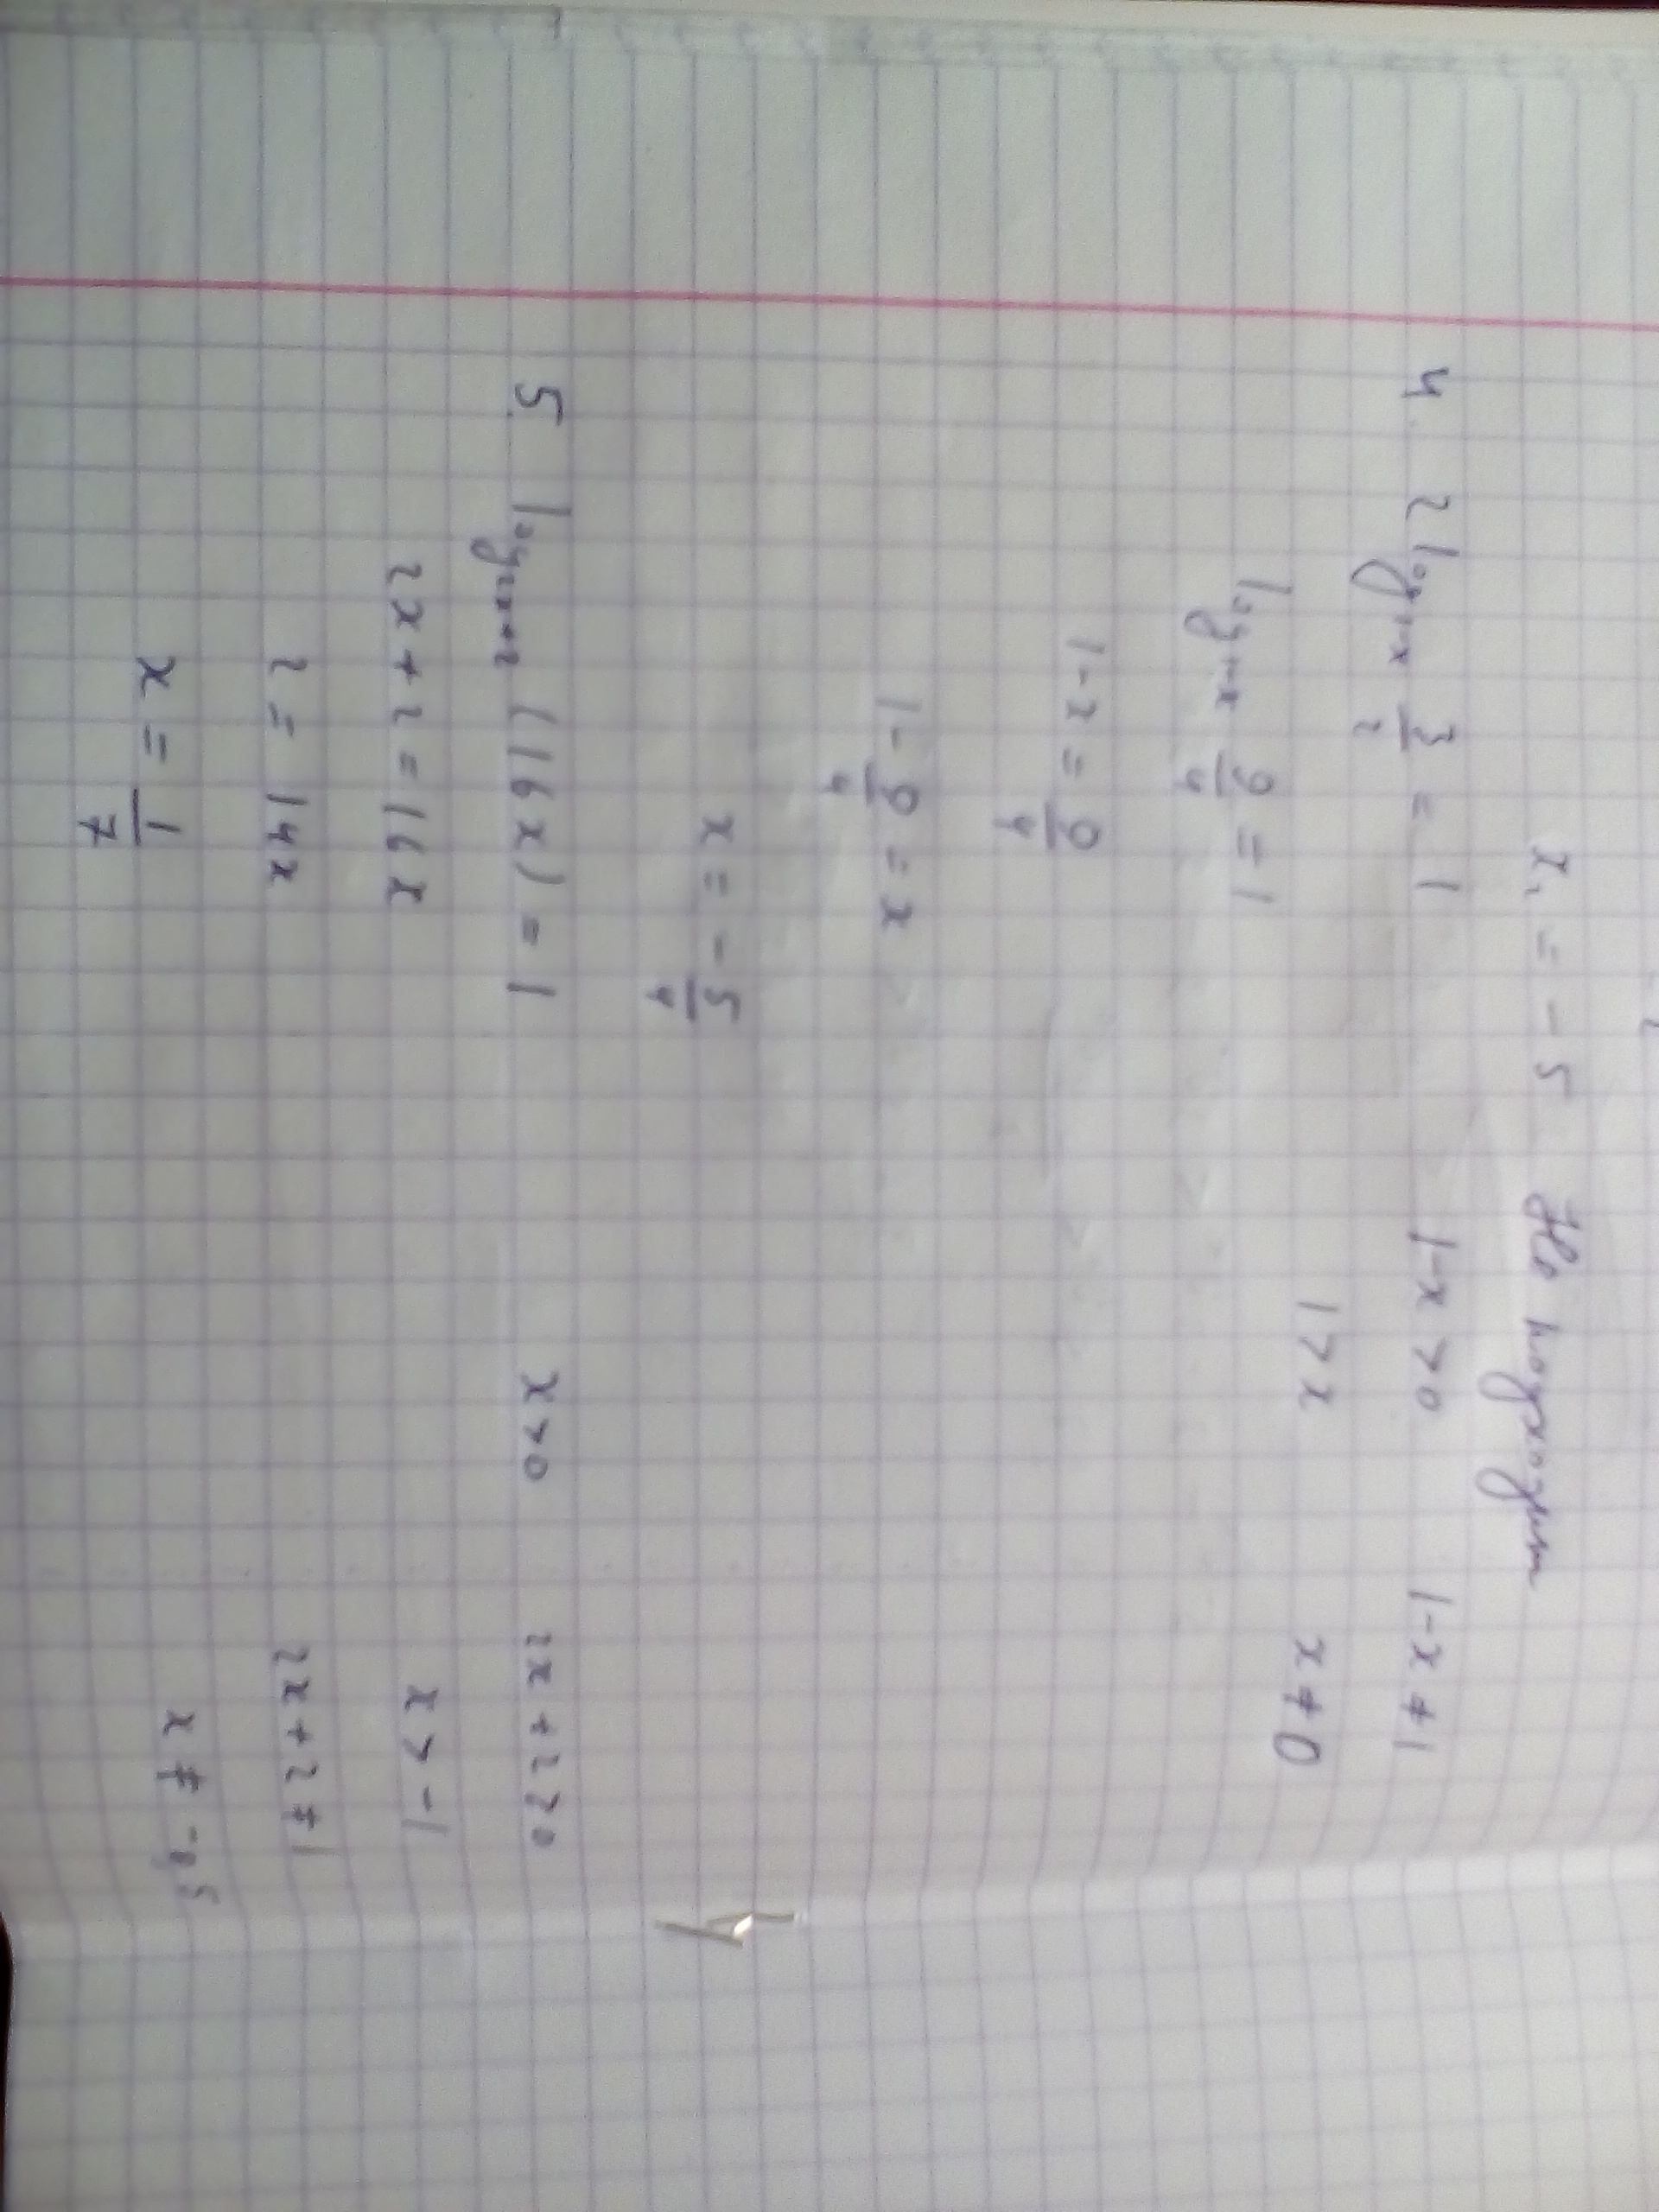 x₁ = - 5 Не подходит
4. 2 log₁₋ₓ 3/2 = 1 1-x > 0 1-x ≠ 1
log₁₋ₓ 9/4 = 1 1 > x x ≠ 0
1-x = 9/4
1 - 9/4 = x
x = - 5/4
5. log₂ₓ₊₂ (16x) = 1 x > 0 2x + 2 > 0
2x + 2 = 16x x > -1
2 = 14x 2x + 2 ≠ 1
x = 1/7 x ≠ -0,5